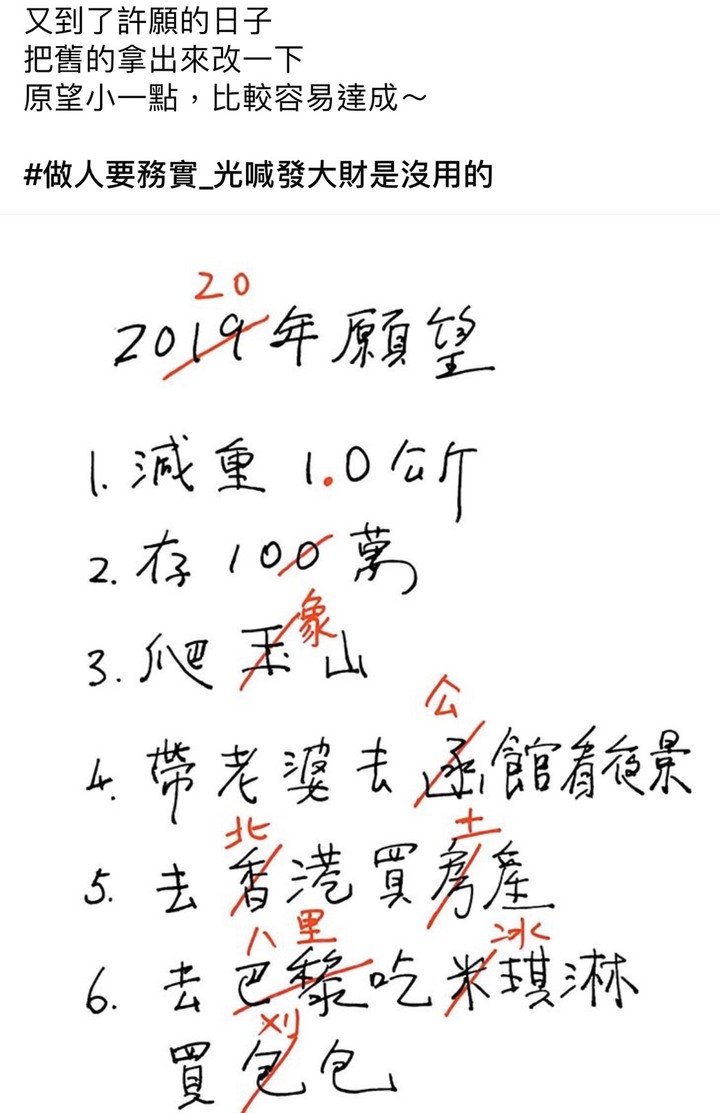 又到了許願的日子
把舊的拿出來改一下
原望小一點，比較容易達成～
#做人要務實_光喊發大財是沒用的
20
2019年願望
1. 減重 1.0 公斤
2. 存 100 萬
象
3. 爬玉山
公
4. 帶老婆去函館看夜景
北 土
5. 去香港買房產
八里 冰
6. 去巴黎吃米琪淋
刈
買包包